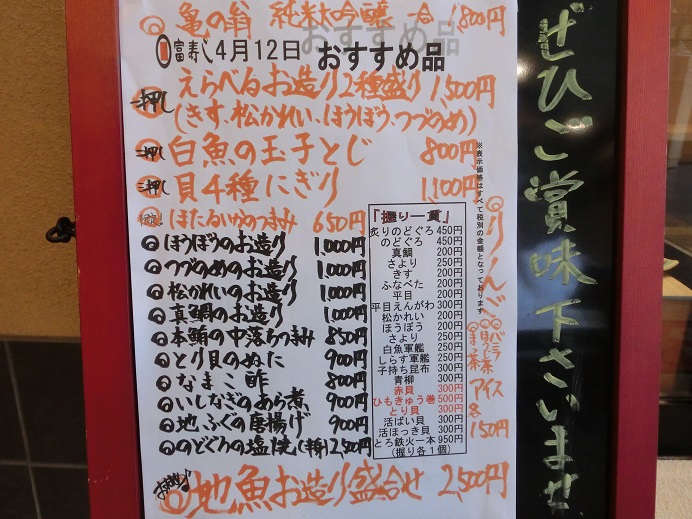 亀の翁 純米大吟醸 一合 1,800円
富寿し 4月12日 おすすめ品
一押し えらべるお造り2種盛り 1,500円
(きす、松かれい、ほうぼう、つづのめ)
一押し 白魚の玉子とじ 800円
一押し 貝4種にぎり 1,100円
ほたるいかのつまみ 650円
◎ほうぼうのお造り 1,000円
◎つづのめのお造り 1,000円
◎松かれいのお造り 1,000円
◎真鯛のお造り 1,000円
◎本鮪の中落ちつまみ 850円
◎とり貝のぬた 900円
◎なまこ酢 800円
◎いしなぎのあら煮 900円
◎地ふぐの唐揚げ 900円
◎のどぐろの塩焼 2,500円
地魚お造り盛合せ 2,500円
「握り一貫」
炙りのどぐろ 450円
のどぐろ 450円
真鯛 200円
さより 250円
きす 200円
ふなべた 200円
平目 200円
平目えんがわ 300円
松かれい 200円
ほうぼう 200円
さより 250円
白魚軍艦 250円
しらす軍艦 250円
子持ち昆布 300円
青柳 300円
赤貝 300円
ひもきゅう巻 500円
とり貝 300円
活ばい貝 300円
活ほっき貝 300円
とろ鉄火一本 950円
(握り各1個)
※表示価格はすべて税別の金額となっております
◎りんご
バニラ
アイス
150円
ぜひご賞味下さいませ